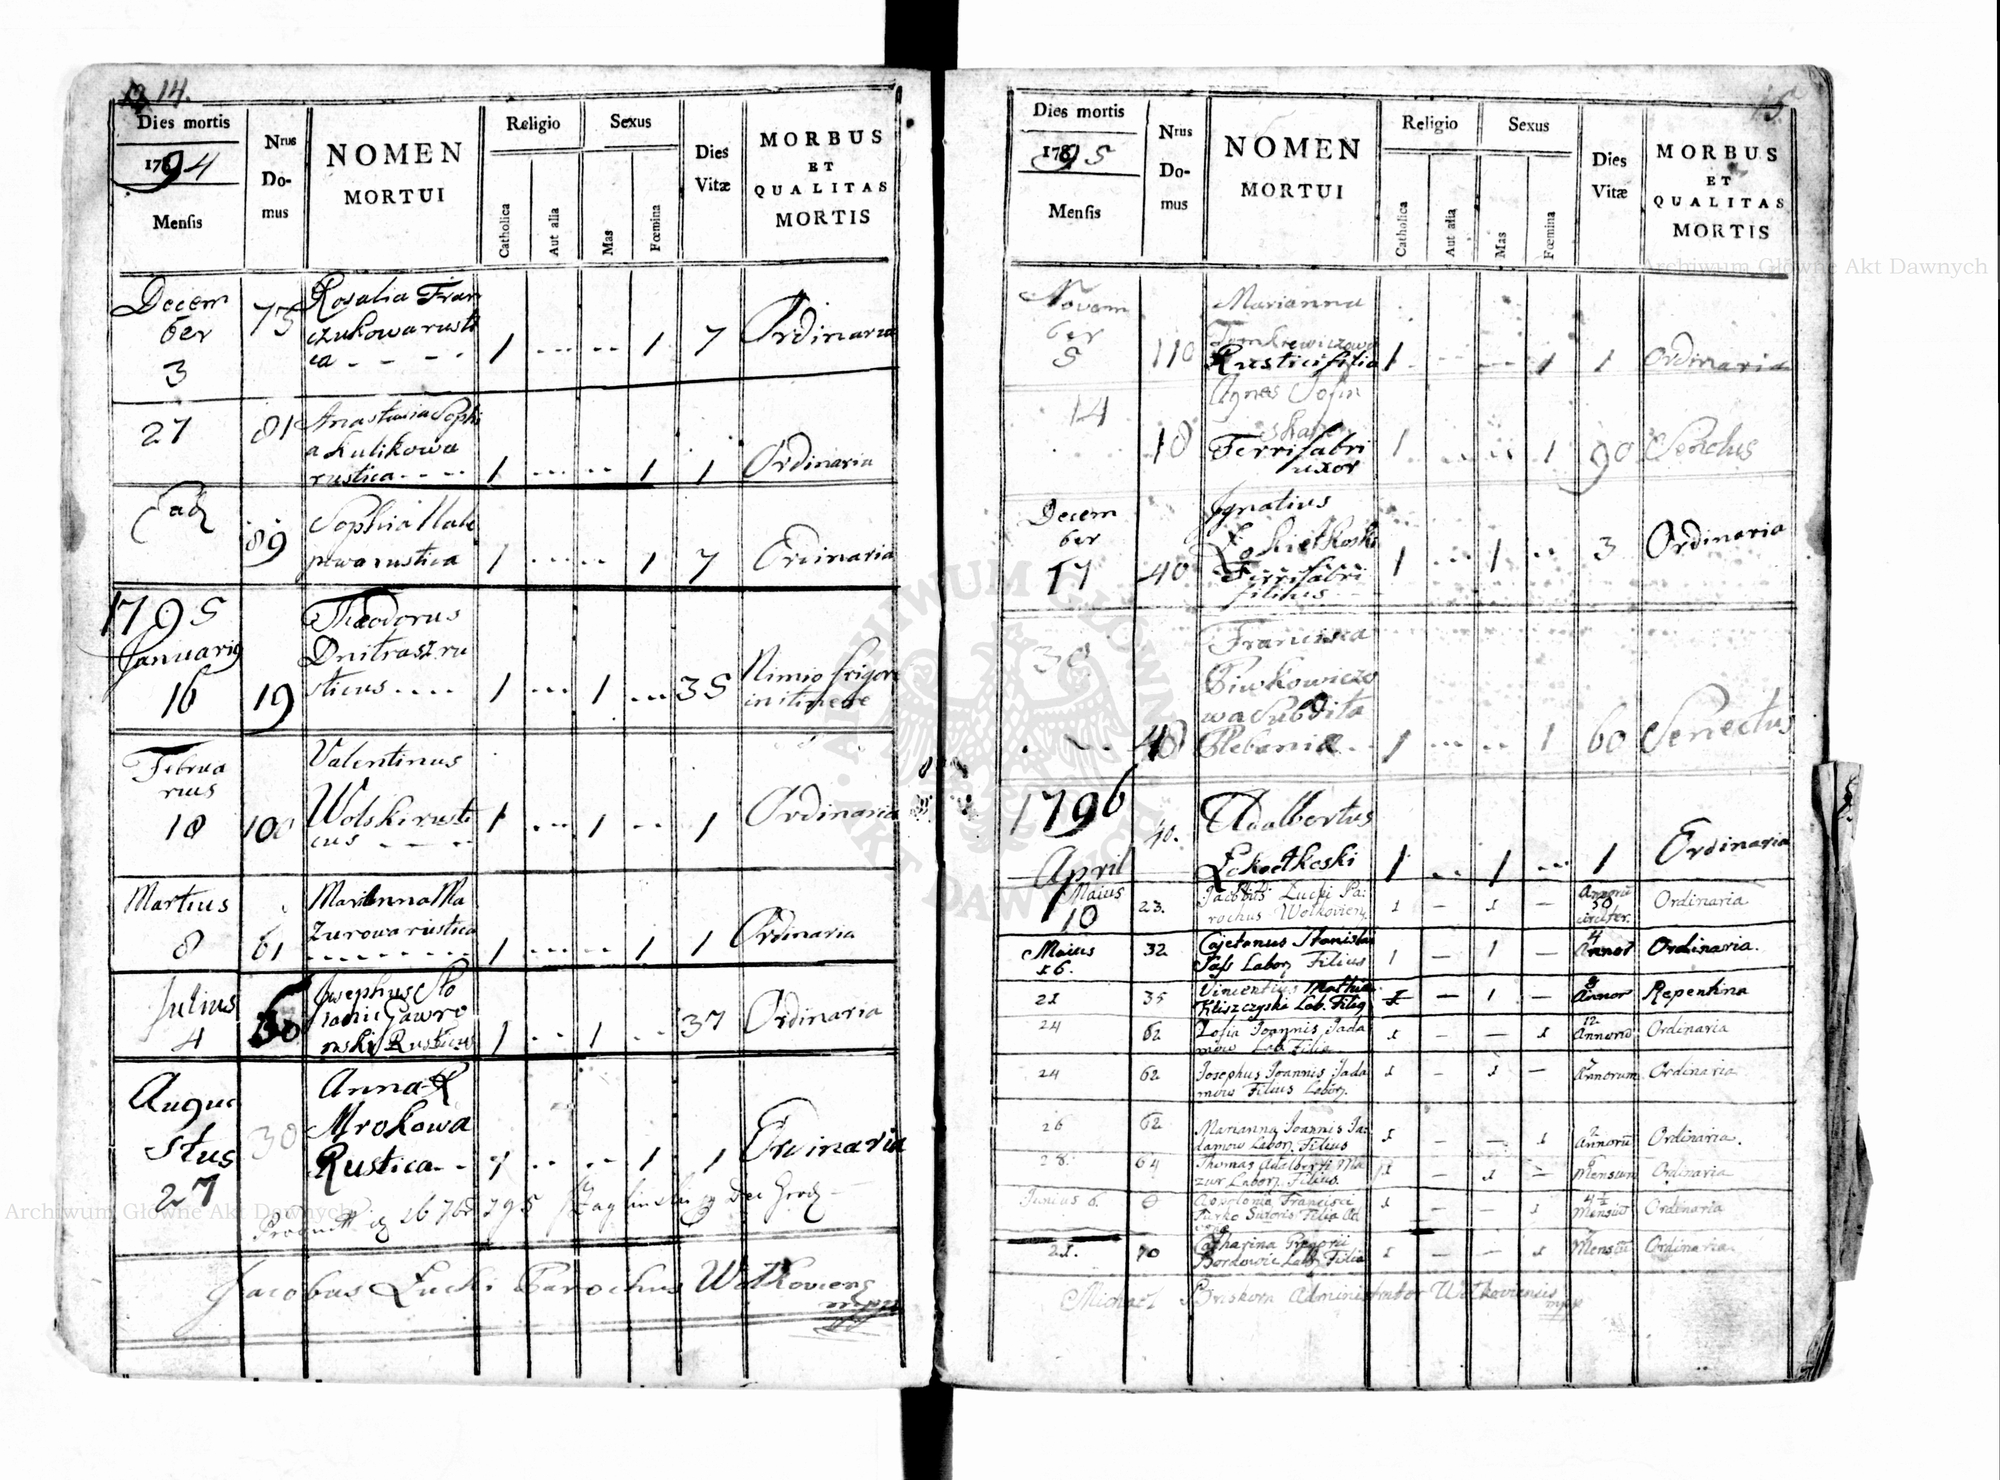 14.
Dies mortis
1794
Mensis
Nrus
Do-
mus
NOMEN
MORTUI
Religio
Catholica
Aut alia
Sexus
Mas
Fœmina
Dies
Vitæ
MORBUS
ET
QUALITAS
MORTIS
Decem
ber
3
73
Rosalia Fran
czukowa rusti
ca - - - -
1 ... .. 1 7 Ordinaria
27
81
Anastasia Sophi
a Kulikowa
rustica - - -
1 ... .. 1 1 Ordinaria
89
Sophia
rustica
1 ... .. 1 7 Ordinaria
1795
Januarius
16
19
Theodorus
Dmitrasz ru
sticus ....
1 ... 1 ... 35
Nimio frigore
Februa
rius
18
100
Valentinus
Wolski rusti
cus - - - -
1 ... 1 .. 1 Ordinaria
Martius
8
61
Marianna Ma
zurowa rustica
1 ... .. 1 1 Ordinaria
Julius
4
Josephus
Gawro
nski Rusticus
1 .. 1 . 37 Ordinaria
Augu
stus
27
30
Anna
Mrokowa
Rustica - -
1 .. .. 1 1 Ordinaria
26 7br 795
Jacobus Łucki Parochus Wolkoviens
mpp
15.
Dies mortis
1795
Mensis
Nrus
Do-
mus
NOMEN
MORTUI
Religio
Catholica
Aut alia
Sexus
Mas
Fœmina
Dies
Vitæ
MORBUS
ET
QUALITAS
MORTIS
Novem
ber
5
110
Marianna
Tomkiewiczowa
Rustici filia
1 . -- --- 1 1 Ordinaria
14
18
Agnes Sosin
ska
Ferrifabri
uxor
1 .. .. 1 90 Senectus
Decem
ber
17
40
Ignatius
Łokietkoski
Ferrifabri
filius
1 .. 1 .. 3 Ordinaria
30
48
Francisca
Piwkowiczo
wa Subdita
Plebaniæ
1 ... .. 1 60 Senectus
1796
April
40.
Adalbertus
Łokietkoski
1 .. 1 ... 1 Ordinaria
Maius
10
23.
Jacobus Łucki Pa-
rochus Wolkovien.
1 — 1 —
Annorū
50
circiter.
Ordinaria
Maius
16.
32
Cajetanus Stanislai
Pass Labor. Filius
1 — 1 —
4
Annor
Ordinaria.
21
35
Vincentius Mathiæ
Kliszczyski Lab. Filiq
1 — 1 —
Annor
Repentina
24
62
Zofia Joannis Jada
mow Lab. Filia
1 — — 1
12
Annorū
Ordinaria
24
62
Josephus Joannis Jada
mow Filius Labor.
1 — 1 —
7
Annorum
Ordinaria
26
62
Marianna Joannis Ja-
damow Labor. Filius
1 — — 1
2
Annorū
Ordinaria.
28.
64
Thomas Adalberti Ma
zur Labor. Filius.
1 — 1 —
Mensium
Ordinaria
Junius 6.
Apolonia Francisci
Turko Sutoris Filia
1 — — 1
4½
Mensiū
Ordinaria
21.
70
Catharina Gregorii
Bordowic Lab. Filia
1 — — 1
Mensiū
Ordinaria.
Michael Briskorn Administrator Wolkoviensis
mpp
ARCHIWUM GŁÓWNE AKT DAWNYCH
Archiwum Główne Akt Dawnych
Archiwum Główne Akt Dawnych